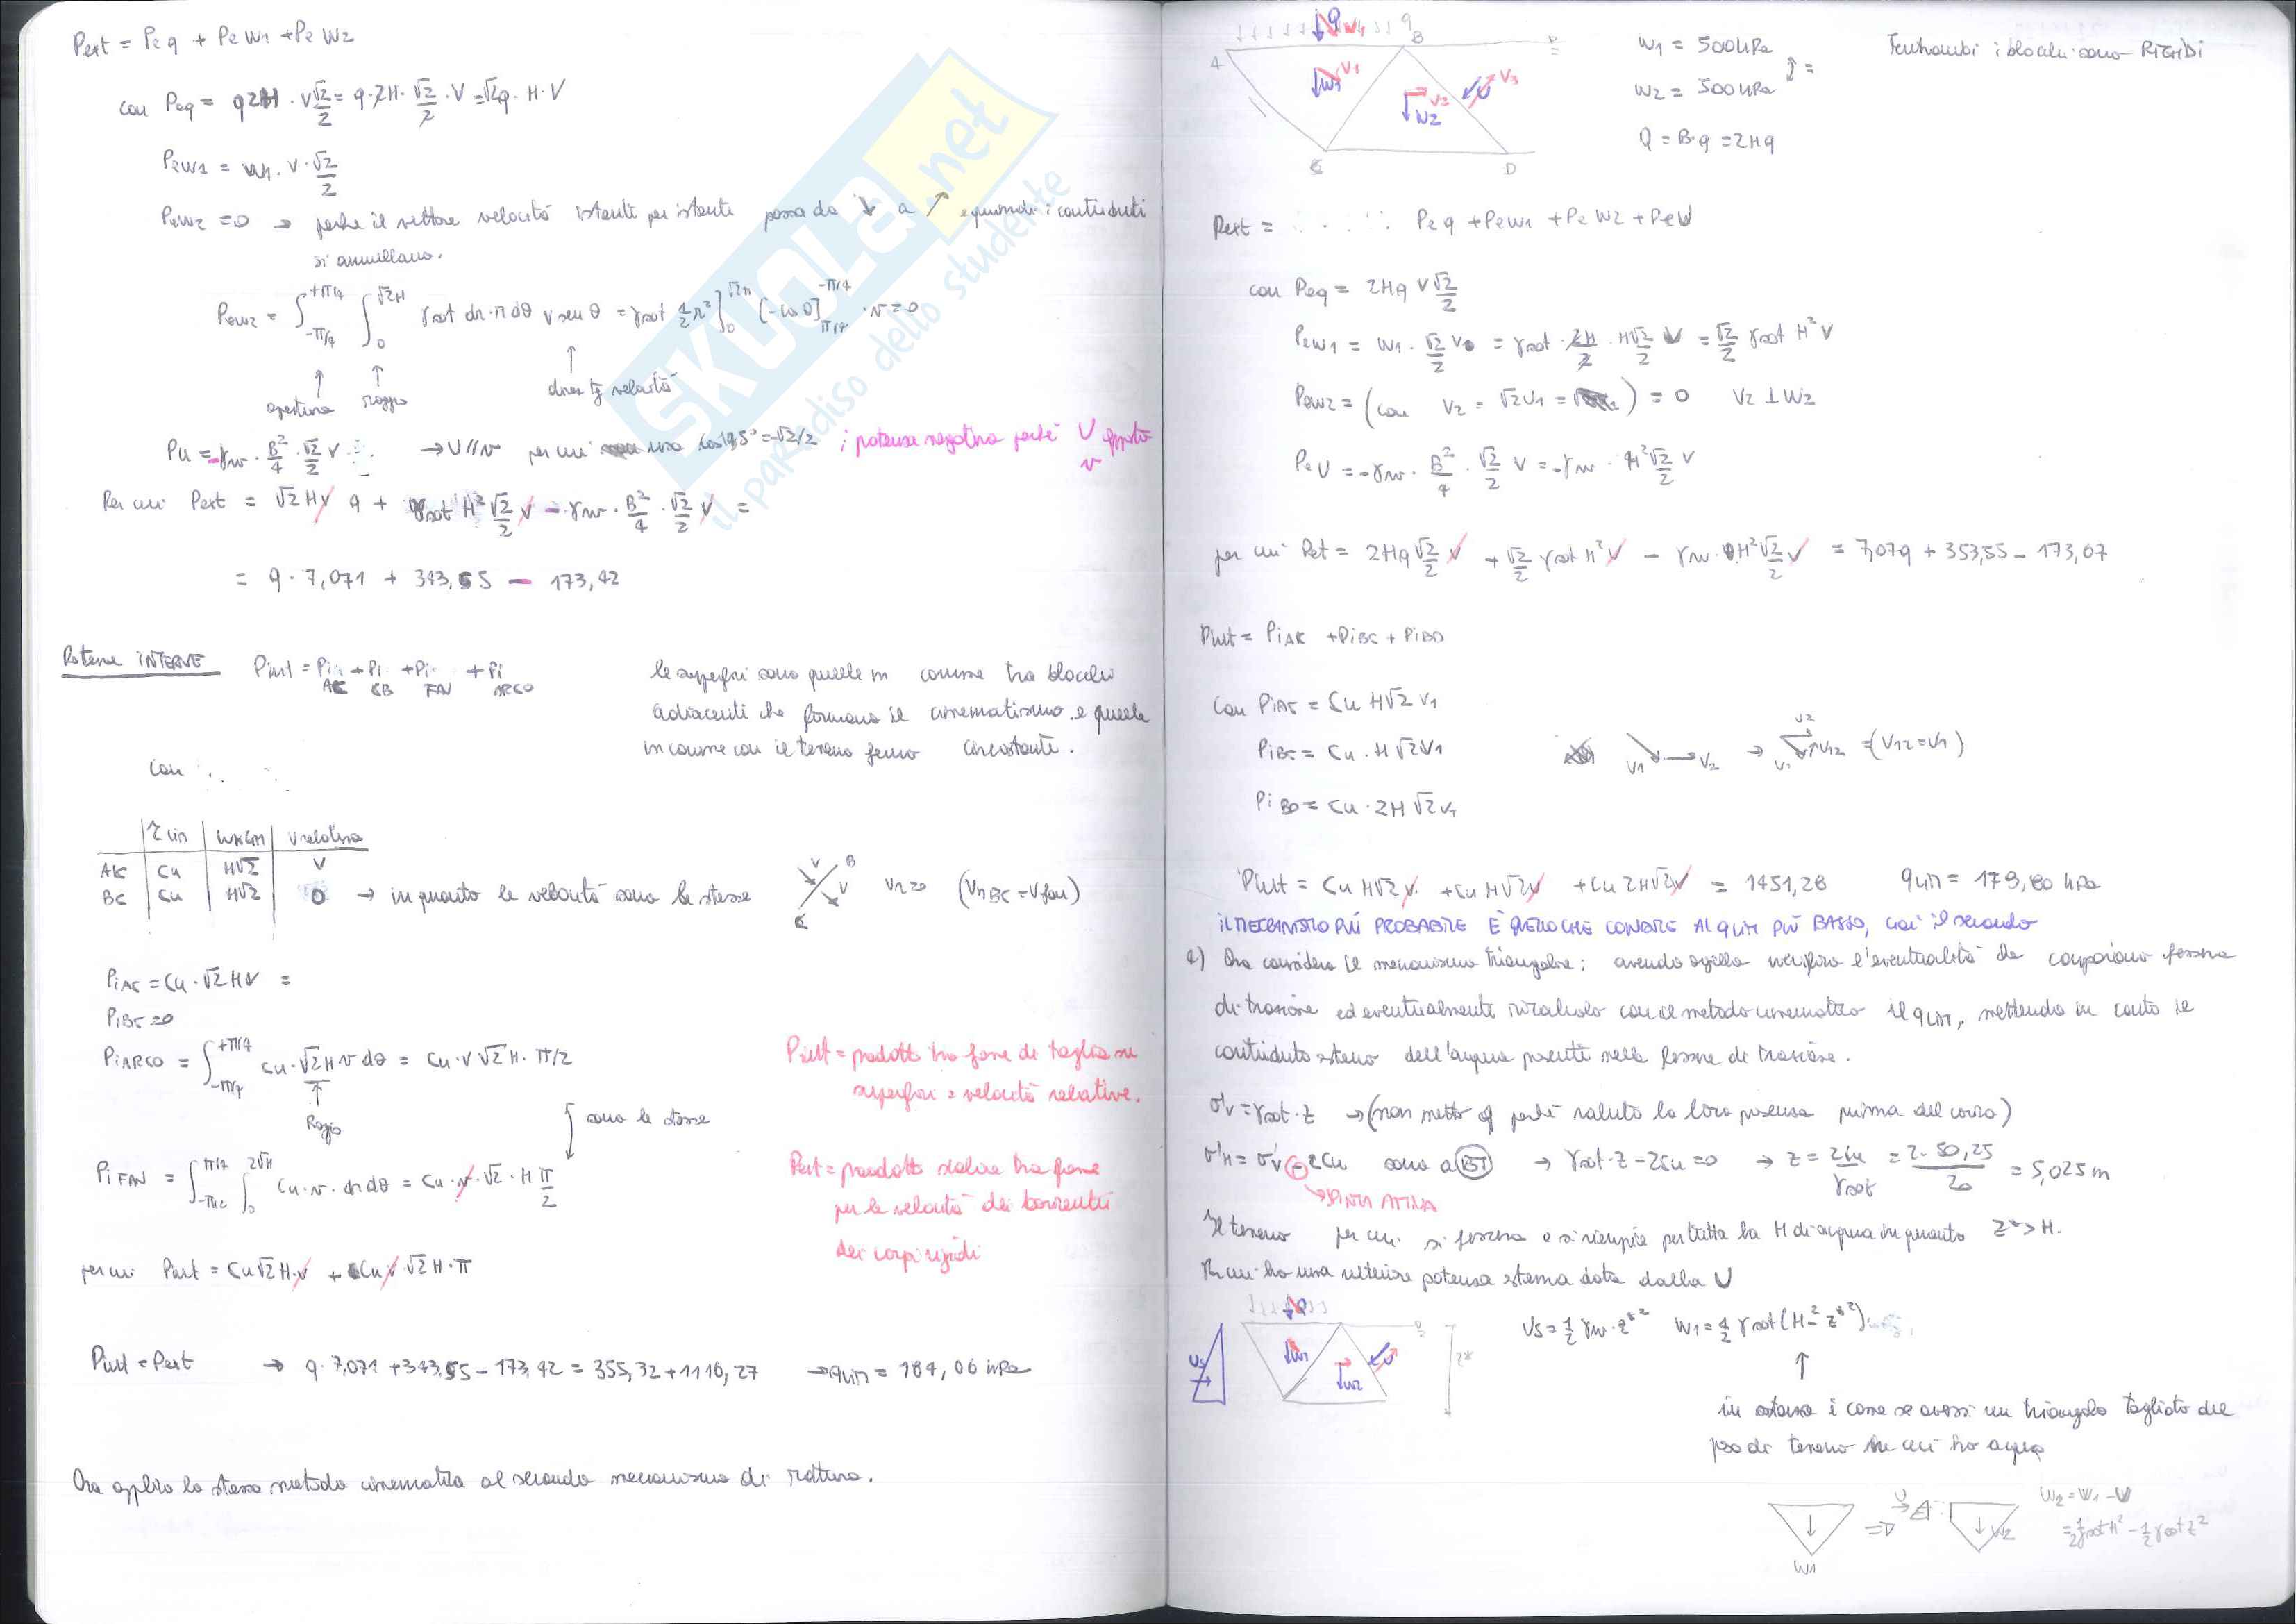 Pext = Peq + PeW1 + PeW2
con Peq = q2H · v√2/2 = q·2H·√2/2·V = √2q·H·V
PeW1 = W1·V·√2/2
PeW2 = 0 → perché il vettore velocità istante per istante passa da ↘ a ↗ e quindi i contributi
si annullano.
PeW2 = ∫-π/4+π/4 ∫0√2H γsat dr·r dθ v sen θ = γsat 1/2 r²]0√2H [-cos θ]π/4-π/4 · v = 0
apertura raggio direz tg velocità
Pu = -γw · B²/4 · √2/2 V → U//v per cui uso cos45° = √2/2 ; potenza negativa perché U opposto
v
Per cui Pext = √2 H V q + γsat H² √2/2 V - γw · B²/4 · √2/2 V =
= q · 7,071 + 343,55 - 173,42
Potenze INTERNE Pint = Pi AC + Pi CB + Pi FAN + Pi ARCO
le superfici sono quelle in comune tra blocchi
adiacenti che formano il cinematismo e quelle
in comune con il terreno fermo circostante.
con
τlim vrelativa
AC Cu H√2 V
BC Cu H√2 0 → in quanto le velocità sono le stesse
V B V C
(V1BC = Vfan)
PiAC = Cu·√2HV =
PiBC = 0
PiARCO = ∫-π/4+π/4 Cu·√2H v dθ = Cu·V√2H·π/2
Raggio
sono le stesse
PiFAN = Cu·v·√2·H π/2
per cui Pint = Cu√2H·V + Cu V √2H·π
Pint = prodotto tra forze di taglio su
superfici e velocità relative.
Pext = prodotto scalare tra forze
per le velocità dei baricentri
dei corpi rigidi
Pint = Pext → q·7,071 + 343,55 - 173,42 = 355,32 + 1116,27 → qlim = 184,06 kPa
Ora applico lo stesso metodo cinematico al secondo meccanismo di rottura.
Q V1 q
A B
W1 V1 V2 W2 U V3
C D
W1 = 500 kPa
W2 = 500 kPa
Q = B·q = 2Hq
Entrambi i blocchi sono RIGIDI
Pext = Peq + PeW1 + PeW2 + PeU
con Peq = 2Hq V√2/2
PeW1 = W1·√2/2 V = γsat·2H/2·H√2/2 V = √2/2 γsat H² V
PeW2 = (con V2 = √2V1 = ) = 0 V2 ⊥ W2
PeU = -γw·B²/4·√2/2 V = -γw·H²√2/2 V
per cui Pext = 2Hq √2/2 V + √2/2 γsat H² V - γw·H²√2/2 V = 7,07q + 353,55 - 173,07
Pint = PiAC + PiBC + PiBD
con PiAC = Cu H√2 V1
PiBC = Cu·H√2V1
V1 V2 → V2 V1 V12 = (V12 = V1)
PiBD = Cu·2H√2V1
Pint = Cu H√2V + Cu H√2V + Cu 2H√2V = 1451,28 qlim = 179,80 kPa
IL MECCANISMO PIÙ PROBABILE È QUELLO CHE CONDUCE AL qlim PIÙ BASSO, cioè il secondo
2) Ora considero il meccanismo triangolare: avendo argilla verifico l'eventualità che compaiano fessure
di trazione ed eventualmente ricalcolo con il metodo cinematico il qlim, mettendo in conto il
contributo esterno dell'acqua presente nelle fessure di trazione.
σ'v = γsat·z → (non metto q perché valuto la loro presenza prima del carico)
σ'H = σ'v - 2Cu sono a BT → γsat·z - 2Cu = 0 → z = 2Cu/γsat = 2·50,25/20 = 5,025 m
→ SPINTA ATTIVA
Il terreno per cui si fessura e si riempie per tutta la H di acqua in quanto z* > H.
Per cui ho una ulteriore potenza esterna data dalla U
Q W1 W2 U Us z*
Us = 1/2 γw·z*² W1 = 1/2 γsat (H² - z*²)
in sostanza è come se avessi un triangolo tagliato del
peso di terreno in cui ho acqua
W1 ⇒ U W2
W2 = W1 - U
= 1/2 γsat H² - 1/2 γsat z²
SKUOLa.net
il paradiso dello studente